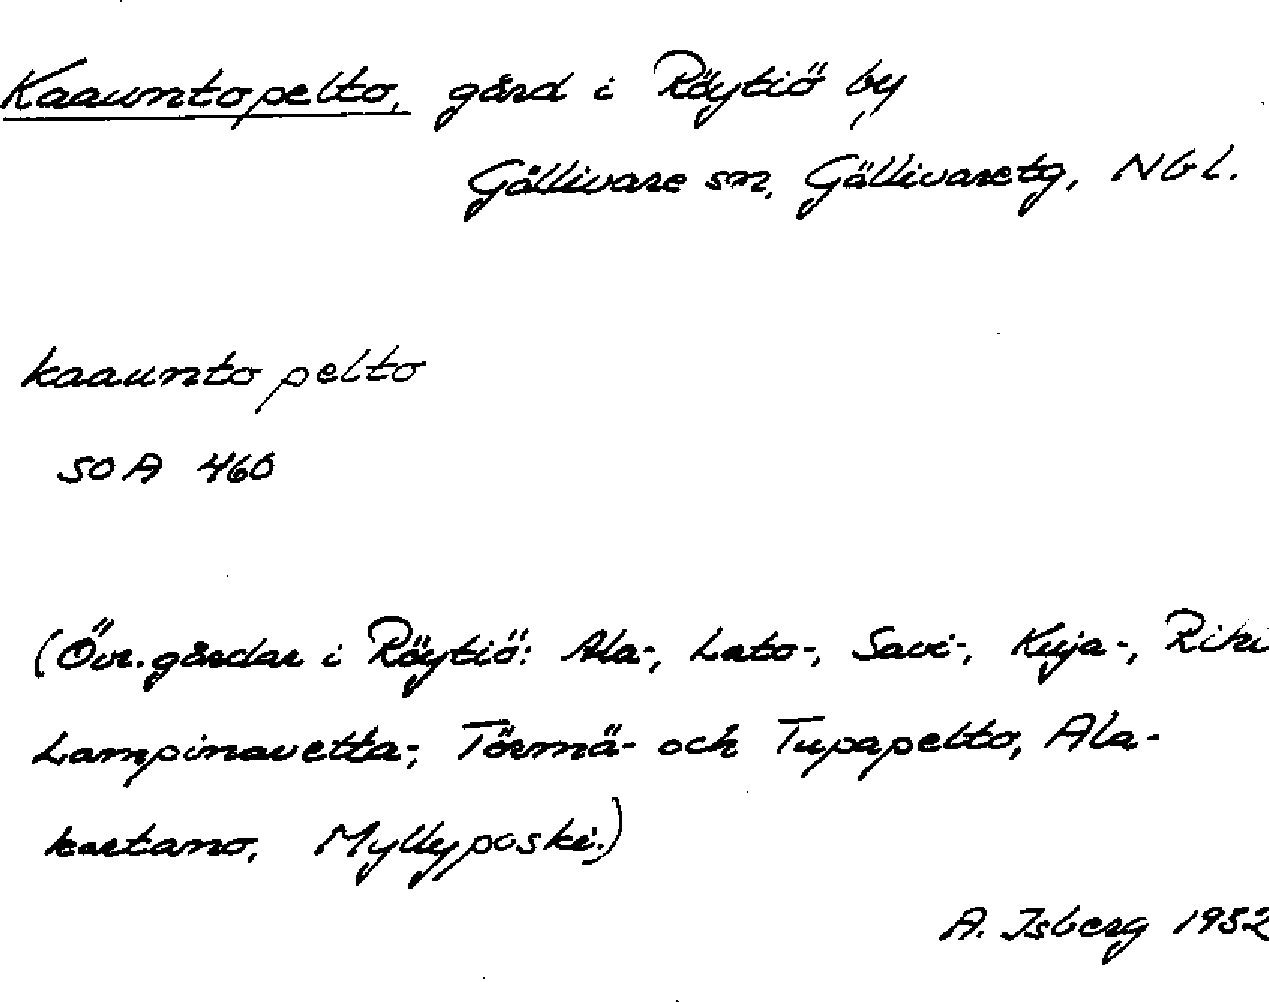 Kaauntopelto, gård i Röytiö by
Gällivare sn, Gällivaretg, NbL.
kaaunto pelto
SOA 460
(Övr. gårdar i Röytiö: Ala-, Lato-, Savi-, Kuja-, Riki
Lampinavetta-, Törmä- och Tupapelto, Ala-
kartano, Myllyposki.)
A. Isberg 1932